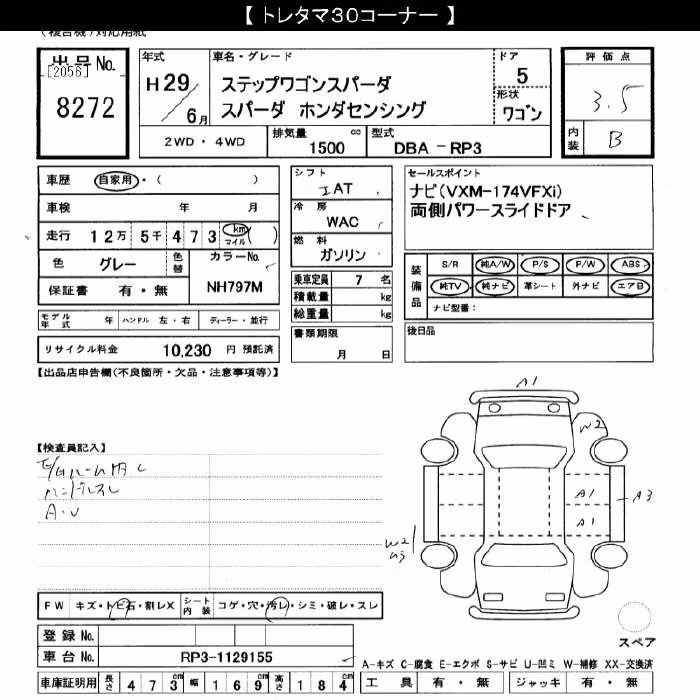 【 トレタマ３０コーナー 】
(複合機)対応用紙
出品No.
[2056]
8272
年式
H29／6月
車名・グレード
ステップワゴンスパーダ
スパーダ ホンダセンシング
ドア
5
形状
ワゴン
評価点
3.5
内装
B
2WD・4WD
排気量
1500 cc
型式
DBA -RP3
車歴 自家用・( )
車検 年 月
走行 12万 5千 4 7 3 km マイル ( )
色 グレー 色替 カラーNo. NH797M
保証書 有・無
シフト
IAT
冷房
WAC
燃料
ガソリン
セールスポイント
ナビ(VXM-174VFXi)
両側パワースライドドア
装備品
S/R 純A/W P/S P/W ABS
純TV 純ナビ 革シート 外ナビ エアB
ナビ型番:
乗車定員 7 名
積載量 kg
総重量 kg
モデル年式 年 ハンドル 左・右 ディーラー・並行
リサイクル料金 10,230 円 預託済
書類期限
月 日
後日品
【出品店申告欄(不良箇所・欠品・注意事項等)】
A1
W2
【検査員記入】
ハンドルスレ
A・U
A1
A1
A3
W2
ムラ
FW キズ・トビ石・割レX
シート内装 コゲ・穴・汚レ・シミ・破レ・スレ
登録No.
車台No. RP3-1129155
スペア
A-キズ C-腐食 E-エクボ S-サビ U-凹ミ W-補修 XX-交換済
車庫証明用 長さ 4 7 3 cm 幅 1 6 9 cm 高さ 1 8 4 cm
工具 有・無 ジャッキ 有・無